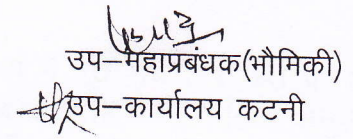 उप–महाप्रबंधक(भौमिकी)
उप–कार्यालय कटनी